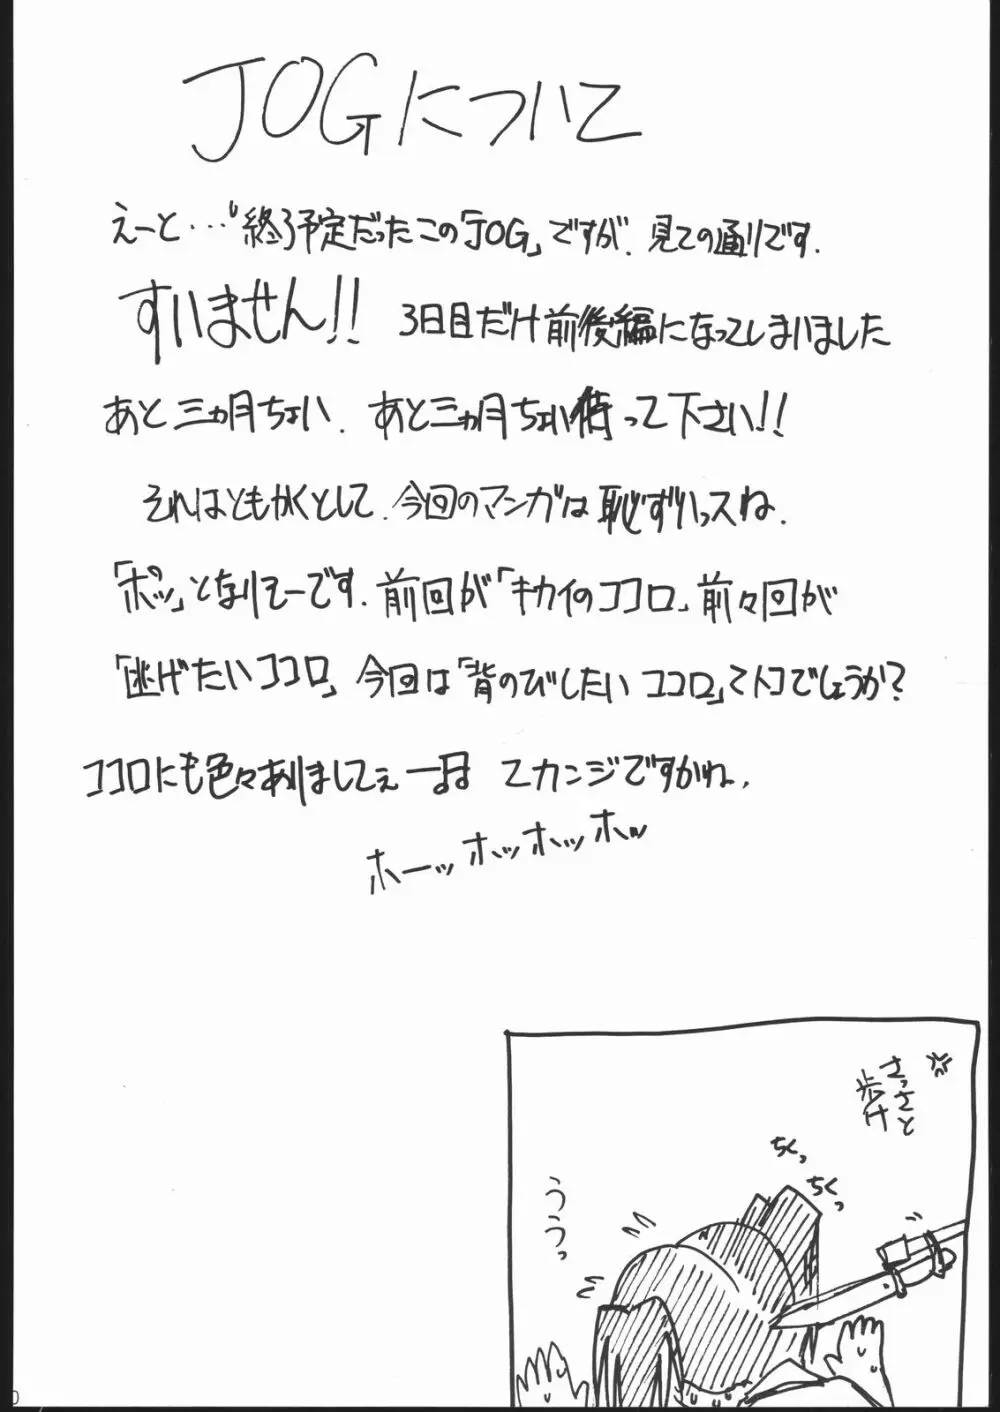 JOGについて
えーと…終了予定だったこの「JOG」ですが、見ての通りです.
すいません!! 3日目だけ前後編になってしまいました
あと三ヵ月ちょい. あと三ヵ月ちょい待って下さい!!
それはともかくとして.今回のマンガは恥ずいっスね.
「ポッ」となりそーです.前回が「キカイのココロ」前々回が
「逃げたいココロ」今回は「背のびしたいココロ」てトコでしょうか?
ココロにも色々ありましてぇー てカンジですかね.
ホーッホッホッホッ
さっさと
歩け
ちくっ
ちくっ
ううっ